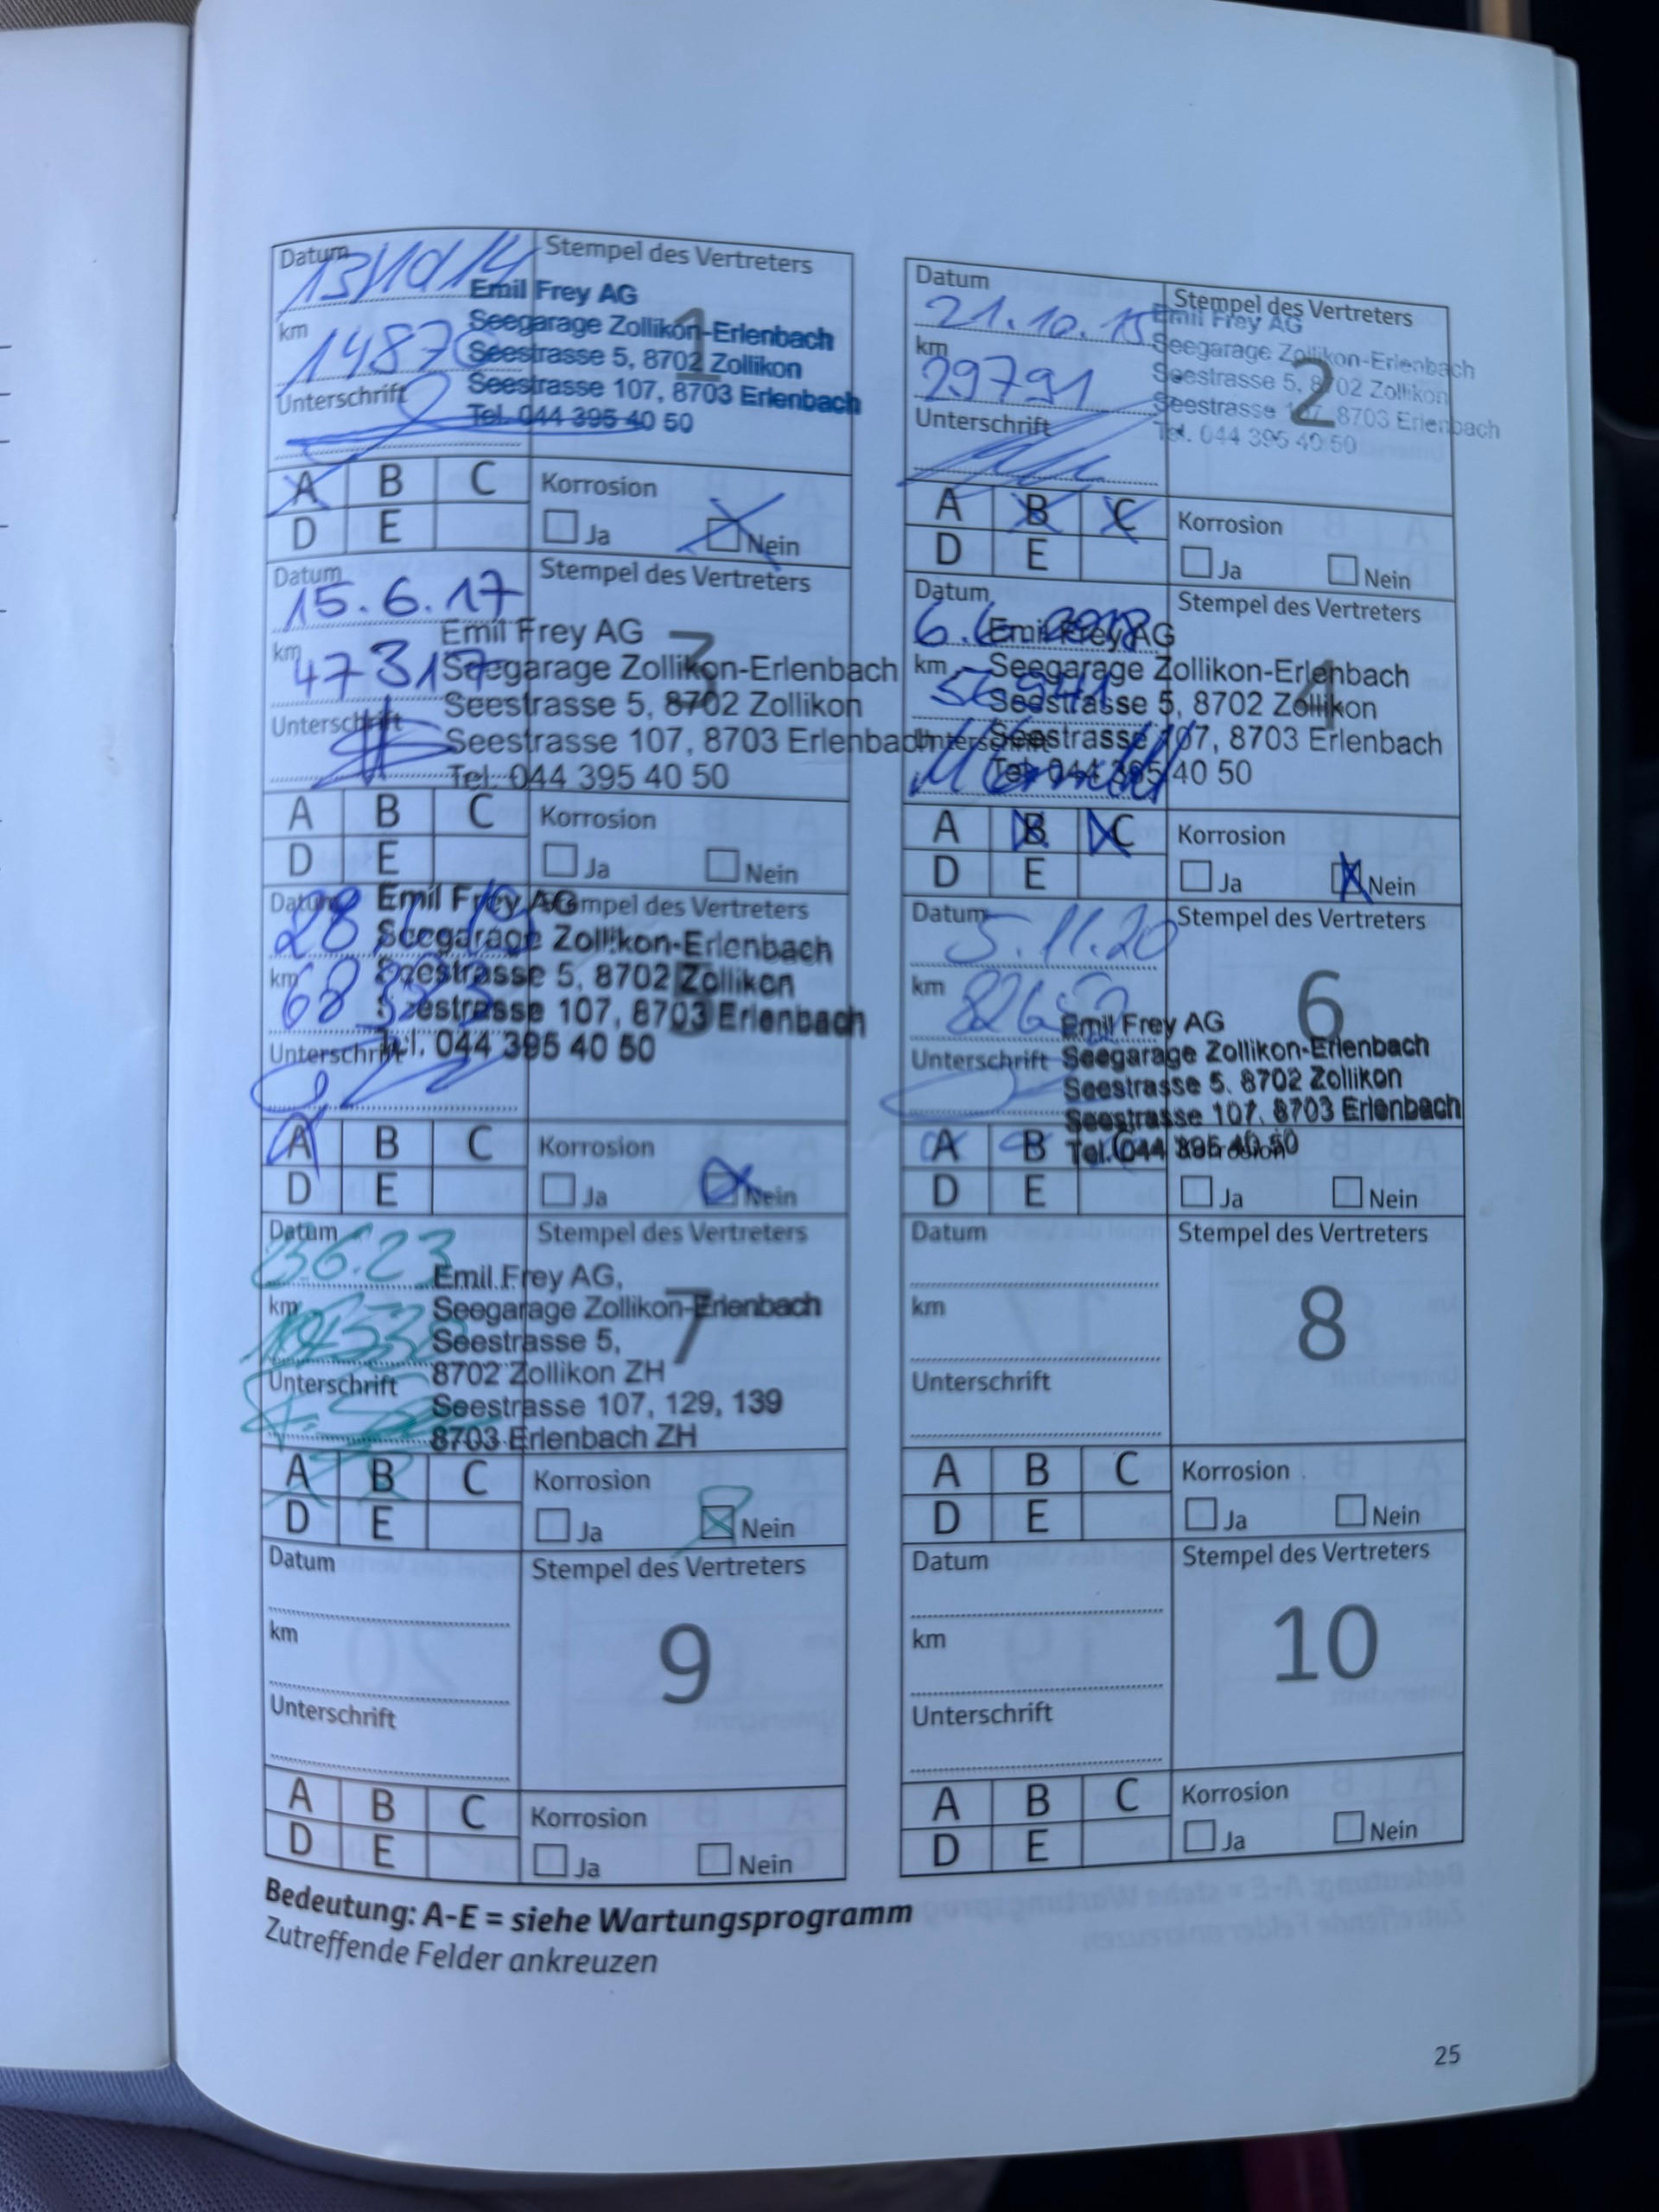 Datum
13/10/14
Stempel des Vertreters
1
Emil Frey AG
km
Seegarage Zollikon-Erlenbach
Seestrasse 5, 8702 Zollikon
Unterschrift
Seestrasse 107, 8703 Erlenbach
Tel. 044 395 40 50
A B C
Korrosion
D E
Ja Nein
Datum
21.10.15
Stempel des Vertreters
2
Emil Frey AG
km
29791
Seegarage Zollikon-Erlenbach
Seestrasse 5, 8702 Zollikon
Unterschrift
Seestrasse 107, 8703 Erlenbach
Tel. 044 395 40 50
A B C
Korrosion
D E
Ja Nein
Datum
15.6.17
Stempel des Vertreters
3
Emil Frey AG
km
47317
Seegarage Zollikon-Erlenbach
Seestrasse 5, 8702 Zollikon
Unterschrift
Seestrasse 107, 8703 Erlenbach
Tel. 044 395 40 50
A B C
Korrosion
D E
Ja Nein
Datum
Stempel des Vertreters
4
Emil Frey AG
km
Seegarage Zollikon-Erlenbach
Seestrasse 5, 8702 Zollikon
Unterschrift
Seestrasse 107, 8703 Erlenbach
Tel. 044 395 40 50
A B C
Korrosion
D E
Ja Nein
Datum
Stempel des Vertreters
Emil Frey AG
Seegarage Zollikon-Erlenbach
km
Seestrasse 5, 8702 Zollikon
Seestrasse 107, 8703 Erlenbach
Unterschrift
Tel. 044 395 40 50
A B C
Korrosion
D E
Ja Nein
Datum
5.11.20
Stempel des Vertreters
6
km
Emil Frey AG
Unterschrift
Seegarage Zollikon-Erlenbach
Seestrasse 5, 8702 Zollikon
Seestrasse 107, 8703 Erlenbach
Tel. 044 395 40 50
A B
Korrosion
D E
Ja Nein
Datum
Stempel des Vertreters
7
Emil Frey AG,
km
Seegarage Zollikon-Erlenbach
Seestrasse 5,
Unterschrift
8702 Zollikon ZH
Seestrasse 107, 129, 139
8703 Erlenbach ZH
A B C
Korrosion
D E
Ja Nein
Datum
Stempel des Vertreters
km
8
Unterschrift
A B C
Korrosion
D E
Ja Nein
Datum
Stempel des Vertreters
km
9
Unterschrift
A B C
Korrosion
D E
Ja Nein
Datum
Stempel des Vertreters
km
10
Unterschrift
A B C
Korrosion
D E
Ja Nein
Bedeutung: A-E = siehe Wartungsprogramm
Zutreffende Felder ankreuzen
25